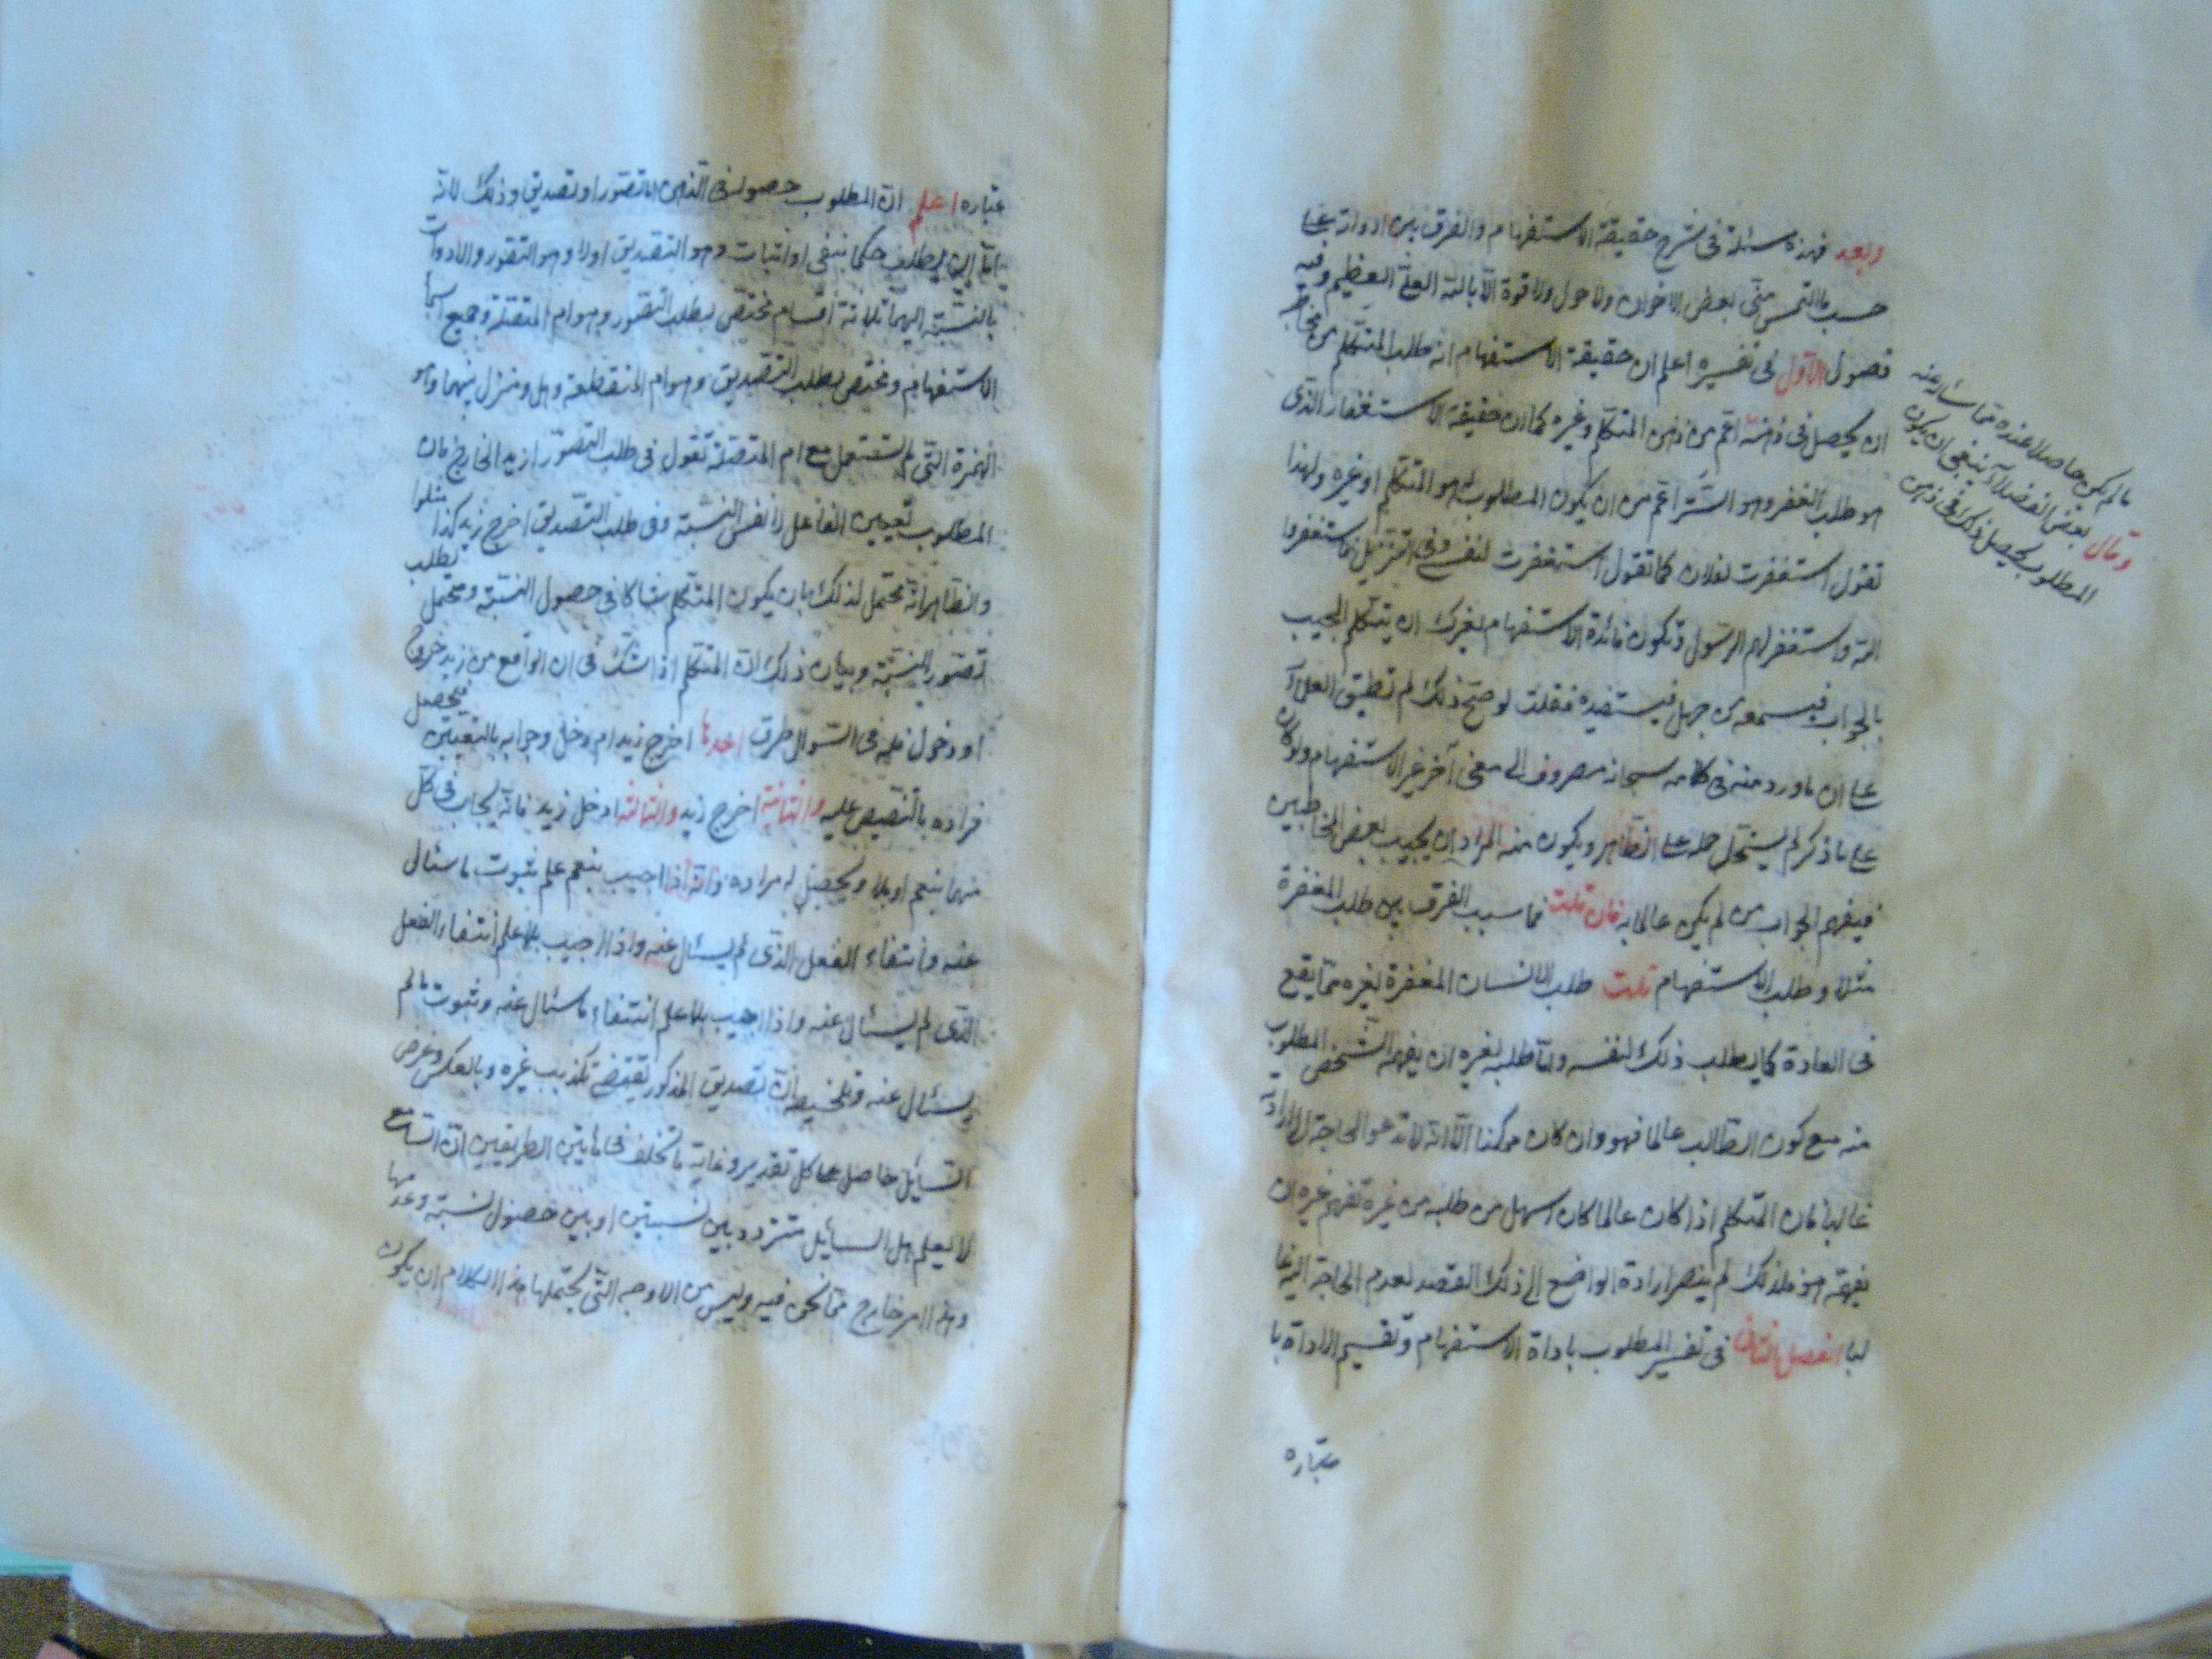 وبعد فهذه مسئلة فى شرح حقيقة الاستفهام والفرق بين ادواته على
حسب ما التمس منى بعض الاخوان ولا حول ولا قوة الا بالله العلى العظيم وفيه
فصول الاول فى تفسيره اعلم ان حقيقة الاستفهام انه طلب المتكلم من مخاطبه
ان يحصل فى ذهنه اعم من ذهن المتكلم وغيره كما ان حقيقة الاستغفار الذى
هو طلب الغفر وهو الستر اعم من ان يكون المطلوب له هو المتكلم او غيره ولهذا
تقول استغفرت لفلان كما تقول استغفرت لنفسى وفى التنزيل فاستغفروا
الله واستغفر لهم الرسول وتكون فائدة الاستفهام لغيرك ان يتكلم المجيب
بالجواب فيسمعه من جهل فيستفيده فقلت لو صح ذلك لم تطبق العلماء
على ان ما ورد منه فى كلامه سبحانه مصروف الى معنى آخر غير الاستفهام ولو كان
على ما ذكر لم يستحل حمله على الظاهر ويكون منه المراد ان يجيب بعض المخاطبين
فيفهم الجواب من لم يكن عالما به فان قلت فما سبب الفرق بين طلب المغفرة
مثلا وطلب الاستفهام قلت طلب الانسان المغفرة لغيره مما يقع
فى العادة كما يطلب ذلك لنفسه واما طلبه لغيره ان يفهمه الشخص المطلوب
منه مع كون الطالب عالما فهو وان كان ممكنا الا انه لا تدعو الحاجة الى ارادته
غالبا فان المتكلم اذا كان عالما كان اسهل من طلبه من غيره تفهيم غيره ان
يفهمه هو فلذلك لم ينصر ارادة الواضع الى ذلك القصد لعدم الحاجة اليه غا
لبا الفصل الثانى فى تفسير المطلوب باداة الاستفهام وتقسيم الاداة با
عتباره
ما لم يكن حاصلا عنده مما سأله عنه
وقال بعض الفضلاء ينبغى ان يكون
المطلوب يحصل ذلك فى ذهن
عتباره اعلم ان المطلوب حصوله فى الذهن اما تصور او تصديق وذلك لانه
اما ان يطلب حكما بنفى او اثبات وهو التصديق اولا وهو التصور والادوات
بالنسبة اليهما ثلاثة اقسام مختص بطلب التصور وهو ام المتصلة وجميع اسماء
الاستفهام ومختص بطلب التصديق وهو ام المنقطعة وهل ومنزل بينهما وهو
الهمزة التى لم تستعمل مع ام المتصلة تقول فى طلب التصور ازيد الخارج فان
المطلوب تعيين الفاعل لا نفس النسبة وفى طلب التصديق اخرج زيد كذا مثلوا
والظاهر انه محتمل لذلك بان يكون المتكلم شاكا فى حصول النسبة ومحتمل لطلب
تصور النسبة وبيان ذلك ان المتكلم اذا شك فى ان الواقع من زيد خروج
او دخول فله فى السوال طرق احدها اخرج زيد ام دخل وجوابه بالتعيين فيحصل
مراده بالتنصيص عليه والثانية اخرج زيد والثالثة ادخل زيد فانه يجاب فى كل
منهما بنعم او بلا ويحصل له مراده فانه اذا اجيب بنعم علم ثبوت ما سئال
عنه وانتفاء الفعل الذى لم يسئال عنه واذا اجيب بلا علم انتفاء الفعل
الذى لم يسئال عنه واذا اجيب بلا علم انتفاء ما سئال عنه وثبوت ما لم
يسئال عنه وتلخيصه ان تصديق المذكور يقتضى تكذيب غيره وبالعكس وغرض
السايل حاصل على كل تقدير وغاية ما تخلف فى هاتين الطريقين ان السامع
لا يعلم هل السايل متردد بين نسبتين او بين حصول نسبة وعدمها
وهذا امر خارج عما نحن فيه وليس من الاوجه التى يحتملها هذا الكلام ان يكون